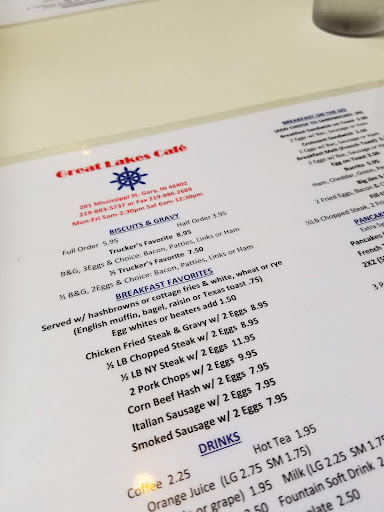 Great Lakes Café
201 Mississippi St. Gary, IN 46402
219-883-5737 or Fax 219-886-2689
Mon-Fri 5am-2:30pm Sat 6am-12:30pm
BISCUITS & GRAVY
Full Order 5.95 Half Order 3.95
Trucker's Favorite 8.95
B&G, 3Eggs & Choice: Bacon, Patties, Links or Ham
½ Trucker's Favorite 7.50
½ B&G, 2Eggs & Choice: Bacon, Patties, Links or Ham
BREAKFAST FAVORITES
Served w/ hashbrowns or cottage fries & white, wheat or rye
(English muffin, bagel, raisin or Texas toast .75)
Egg whites or beaters add 1.50
Chicken Fried Steak & Gravy w/ 2 Eggs 8.95
½ LB Chopped Steak w/ 2 Eggs 8.95
½ LB NY Steak w/ 2 Eggs 11.95
2 Pork Chops w/ 2 Eggs 9.95
Corn Beef Hash w/ 2 Eggs 7.95
Italian Sausage w/ 2 Eggs 7.95
Smoked Sausage w/ 2 Eggs 7.95
DRINKS
Coffee 2.25 Hot Tea 1.95
Orange Juice (LG 2.75 SM 1.75)
or grape) 1.95 Milk (LG 2.25 SM
Fountain Soft Drink 2
2.50
BREAKFAST ON THE GO
(ADD CHEESE TO SANDWICHES
Breakfast Sandwich on Toast 5.00
2 Eggs w/ Bar, Sausage or Ham
Croissant Sandwich 5.50
2 Eggs w/ Bar, Sausage or Ham
Breakfast Melt (French Toast)
2 Eggs w/ Bar, Sausage or Ham
Egg on Toast 3.50
Burrito
Ham, Cheddar, Onion,
Big Jim
2 Fried Eggs, Bacon &
½LB Chopped Steak, 2 Fri
PANCAKES
Extra
Pancakes
French
2X2 (S